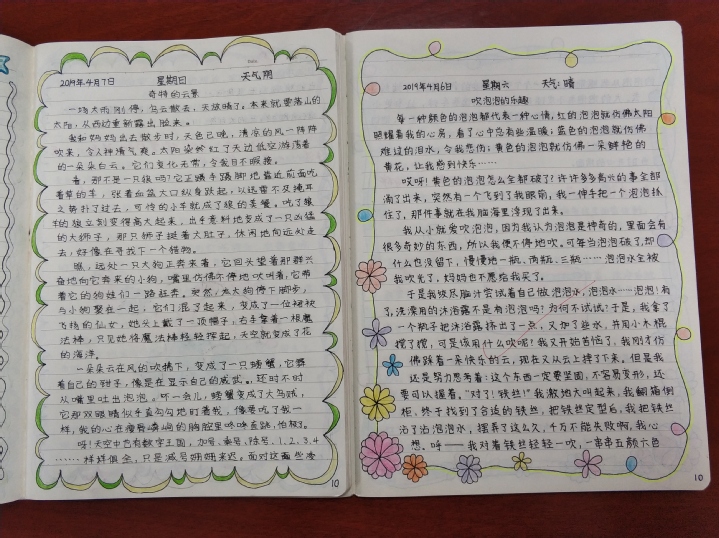 2019年4月7日 星期日 天气:阴
奇特的云景
一场大雨刚停,乌云散去,天放晴了。本来就要落山的
太阳,从西边重新露出脸来。
我和妈妈出去散步时,天色已晚,清凉的风一阵阵
吹来,令人神清气爽。太阳染红了天边低空游荡着
的一朵朵白云。它们变化无常,令我目不暇接。
看,那不是一只狼吗?它正蹑手蹑脚地靠近前面吃
着草的羊,张着血盆大口纵身跃起,以迅雷不及掩耳
之势扑了过去,可怜的小羊就成了狼的美餐。吃了狼
羊的狼立刻变得高大起来,出乎意料地变成了一只凶猛
的大狮子,那只狮子挺着大肚子,休闲地向远处走
去,好像在寻找下一个猎物。
瞧,远处一只大狗正奔来着,它回头望着那群兴
奋地向它奔来的小狗,嘴里仿佛不停地吠叫着,它带
着它的狗娃们一路赶奔。突然,老大狗停下脚步,
与小狗聚在一起,它们混了起来,变成了一位裙袂
飞扬的仙女,她头上戴了一顶帽子,右手拿着一根魔
法棒,只见她将魔法棒轻轻挥起,天空就变成了花
的海洋。
一朵朵云在风的吹拂下,变成了一只螃蟹,它舞
着自己的钳子,像是在显示自己的威武。还时不时
从嘴里吐出泡泡。不一会儿,螃蟹变成了大乌贼,
它那双眼睛似乎直勾勾地盯着我,像要吃了我一
样,我的心在瘦骨嶙峋的胸膛里咚咚直跳,怕极了。
呀!天空中也有数字王国,加号、乘号、除号、1、2、3、4
……样样俱全,只是减号姗姗来迟。面对这画些凌
10
2019年4月6日 星期六 天气:晴
吹泡泡的乐趣
每一种颜色的泡泡都代表一种心情,红的泡泡就仿佛太阳
照耀着我的心房,看了心中总有些温暖;蓝色的泡泡就仿佛
难过的泪水,令我悲伤;黄色的泡泡就仿佛一朵鲜艳的
黄花,让我感到快乐……
哎呀!黄色的泡泡怎么全都破了?许许多多有兴的事全部
涌了出来,突然有一个飞到了我眼前,我一伸手把一个泡泡抓
住了,那件事就在我脑海里浮现了出来。
我从小就爱吹泡泡,因为我认为泡泡是神奇的,里面会有
很多奇妙的东西,所以我便不停地吹。可每当泡泡破了,却
什么也没留下,慢慢地一瓶、两瓶、三瓶……泡泡水全被
我吹光了,妈妈也不愿给我买了。
于是我绞尽脑汁尝试着自己做泡泡水,泡泡水…泡泡!有
了,洗澡用的沐浴露不是有泡泡吗?为何不试试?于是,我拿了
一个瓶子把沐浴露挤出了一点,又加了些水,并用小木棍
搅了搅,可是该用什么吹呢?我又开始苦恼了,我刚才仿
佛踩着一朵快乐的云,现在又从云上摔了下来。但是我
还是努力思考着:这个东西一定要坚固,不容易变形,还
要可以握着。“对了!铁丝!”我激地大叫起来,我翻箱倒
柜,终于找到了合适的铁丝,把铁丝定型后,我把铁丝
沾了沾泡泡水,摆弄了这么久,千万不能失败啊,我心
想。呼——我对着铁丝轻轻一吹,一串串五颜六色
10